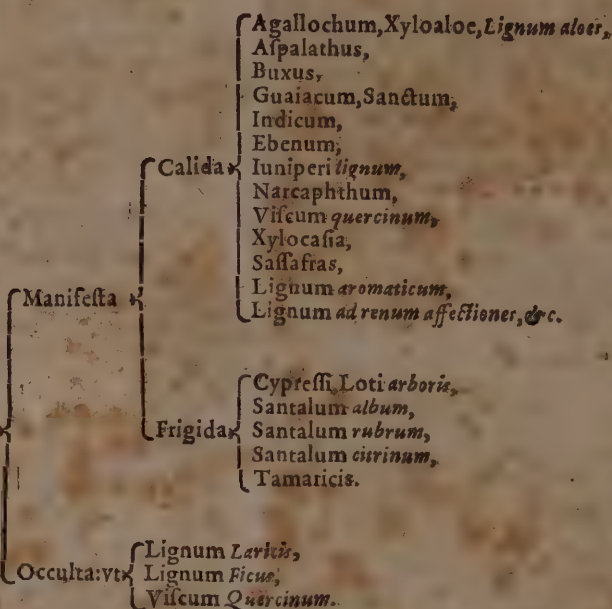 Agallochum, Xyloaloe, Lignum aloes,
Aſpalathus,
Buxus,
Guaiacum, Sanctum,
Indicum,
Ebenum,
Calida
Iuniperi lignum,
Narcaphthum,
Viſcum quercinum,
Xylocaſia,
Saſſafras,
Manifeſta
Lignum aromaticum,
Lignum ad renum affectiones, &c.
Cypreſſi, Loti arboris,
Santalum album,
Frigida
Santalum rubrum,
Santalum citrinum,
Tamaricis.
Occulta: vt
Lignum Laricis,
Lignum Ficus,
Viſcum Quercinum.